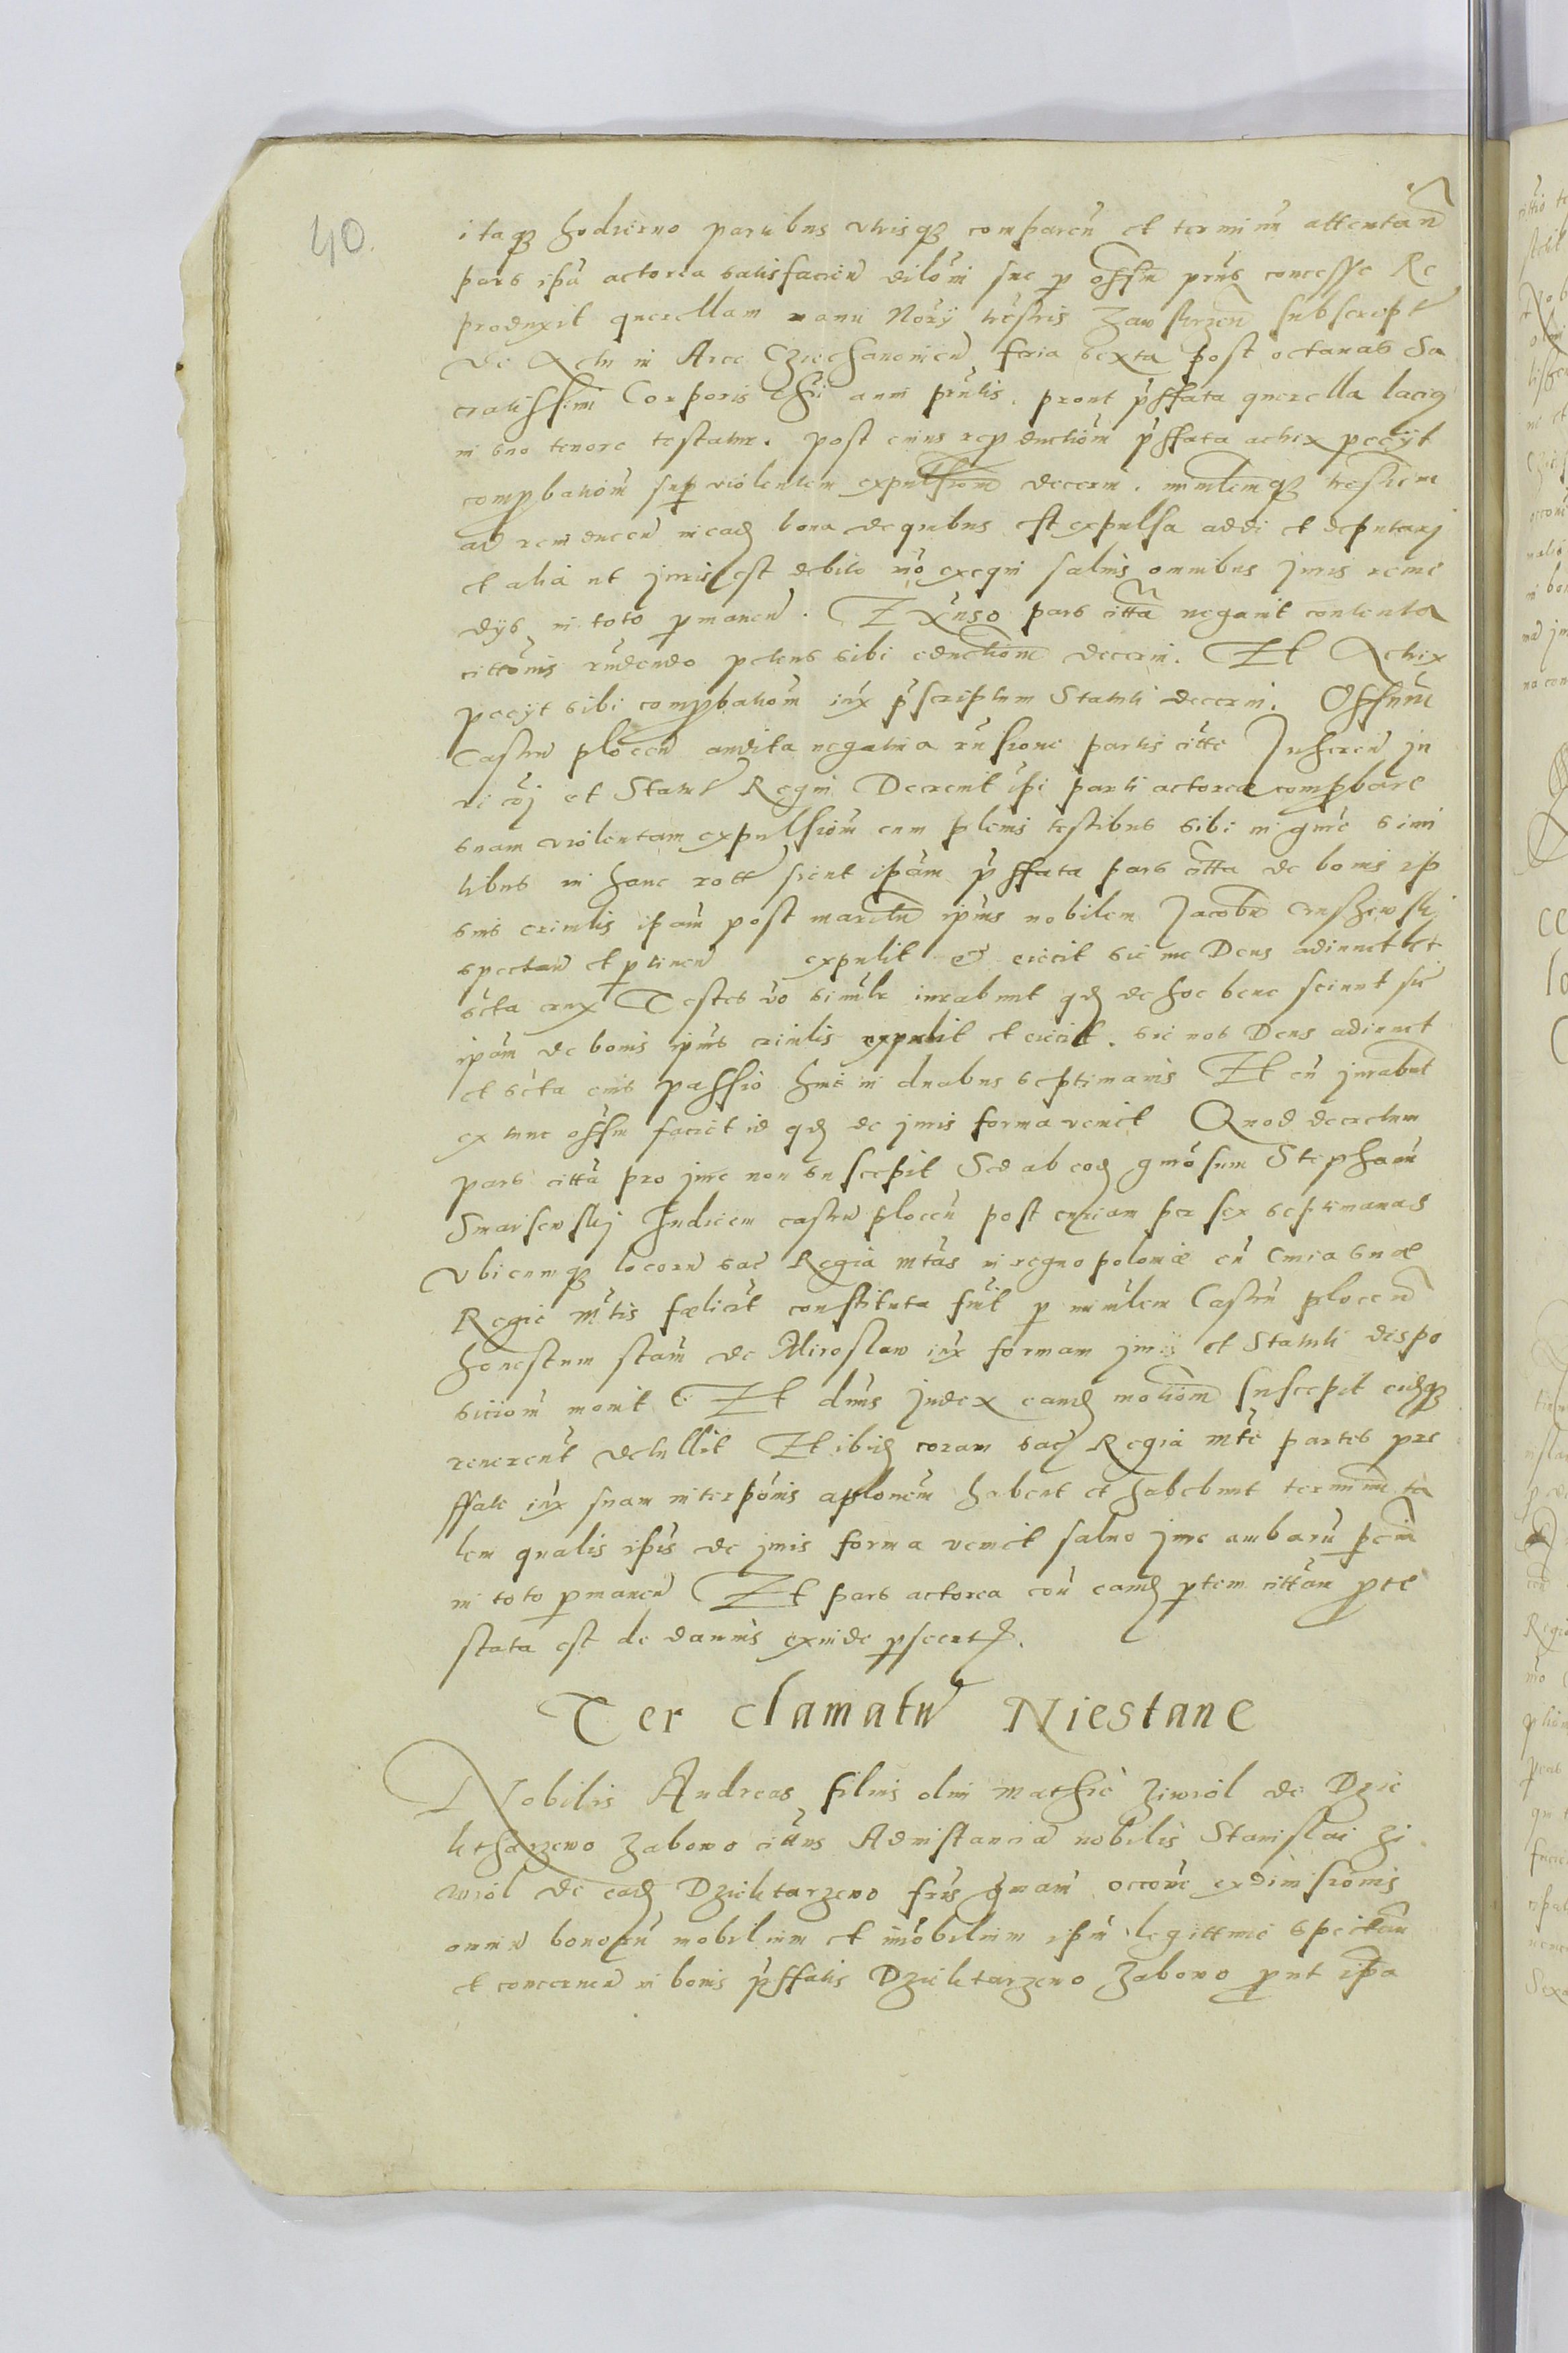 40.
itaq3 hodierno partibus utrisq3 comparen et terminu attentan
pars ipa actorea satisfacien diloni sue p offm prius concesse Re
produxit querellam manu Nory trestris Zawskrzen subscript
de Actu in Arce Cziechanowien feria sexta post octauas Sa
cratissimi Corporis Chri anni pntis. prout pffata querella lacig
in suo tenore testatur. post cuius repductiom pffata actrix pecyt
compbatiom sup violentem expulsiom decerni. mintlemq3 trestrem
ad reinducen in eadz bona de quibus est expulsa addi et deputarj
et alia ut juris est debito mo exequi saluis omnibus juris reme
dys in toto pmanen. Ex aduso pars citta negauit contenta
cittonis rndendo petens sibi eductiom decerni. Et Actrix
pecyt sibi compbatiom iux pscriptum Statuti decerni. Offium
Castrn plocen audita negatiua rnsione partis citte Inheren ju
ri coj et Statut Regni Decreuit ipi parti actoree compbare
suam violentam expulsiom cum plenis testibus sibi in gnre simi
libus in hanc rott sicut ipam pffata pars citta de bonis ip
sius criultis ipam post maritu ipius nobilem Jacobu
spectan et ptinen expulit et eiecit sic me Deus adiuuet et
scta crux Testes vo similr iurabunt qdz de hoc bene sciunt sic
ipam de bonis ipius expulit et eiecit. sic nos Deus adiuuet
et scta eius passio hinc in duabus septimanis Et cu jurabut
ex tunc offm faciet id qdz de juris forma veniet Quod decretum
pars citta pro jure non suscepit Sed ab eodz gnrosum Stephanu
Smarsewskj Judicem castrn plocen post curiam per sex septimanas
Vbicumq3 locoru sac Regia mtas in regno polonie cu Curia sua
Regie mtis fœlicit constituta fuit p mintlem Castrn plocen
honestum stam de Miroslaw iux formam juris et Statuti dispo
siciom mouit Et dnus judex eandz motiom suscepit eidzq3
reuerent detullit Et ibidz coram sac Regia mte partes pre
ffate iux suam interpois aplonem habent et habebunt terminum ta
lem qualis ipis de juris forma veniet saluo jure ambaru pciu
in toto pmanen Et pars actorea con eandz ptem cittam prote
stata est de damnis exinde psecutz.
Ter clamatu Niestane
Nobilis Andreas filius olim mathie Ziwiol de Dzie
ktharzewo Zabowo cittus Ad instancia nobilis Stanislai Zi
wiol de eadz Dziektarzewo fris gmani occone exdiuisionis
omn bonoru mobilium et imobilium ipm legittime spectan
et concernen in bonis pffatis Dziektarzewo Zabowo prut ipa